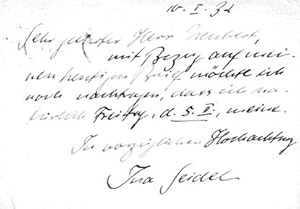 10. I. 32
Sehr geehrter Herr
mit Bezug auf mei-
nen heutigen möchte ich
noch nachtragen, dass ich na-
türlich Freitag, d. 5. II., meine.
In vorzüglicher Hochachtung
Ina Seidel